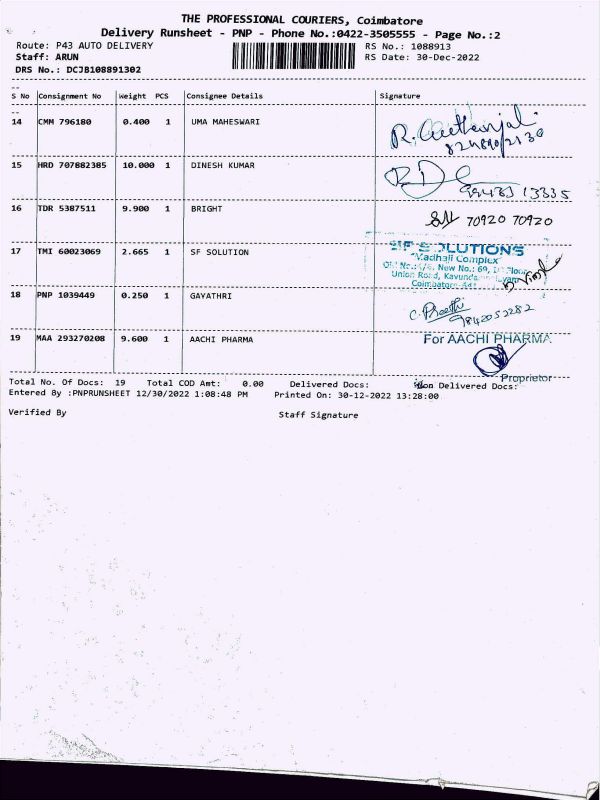 THE PROFESSIONAL COURIERS, Coimbatore
Delivery Runsheet - PNP - Phone No.:0422-3505555 - Page No.:2
Route: P43 AUTO DELIVERY RS No.: 1088913
Staff: ARUN RS Date: 30-Dec-2022
DRS No.: DCJB108891302
S No Consignment No Weight PCS Consignee Details Signature
14 CMM 796180 0.400 1 UMA MAHESWARI
R.
15 HRD 707882385 10.000 1 DINESH KUMAR
13335
16 TDR 5387511 9.900 1 BRIGHT
70920 70920
17 TMI 60023069 2.665 1 SF SOLUTION
SOLUTIONS
"Madhaji Complex"
New No.: 69,
Union Road,
Coimbatore-641
18 PNP 1039449 0.250 1 GAYATHRI
C. Preethi
9842052282
19 MAA 293270208 9.600 1 AACHI PHARMA
For AACHI PHARMA
Proprietor
Total No. Of Docs: 19 Total COD Amt: 0.00 Delivered Docs: Non Delivered Docs:
Entered By :PNPRUNSHEET 12/30/2022 1:08:48 PM Printed On: 30-12-2022 13:28:00
Verified By Staff Signature